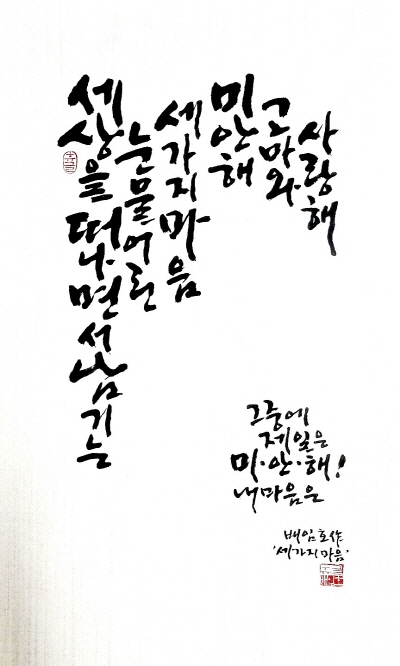 세상을 떠나면서 남기는
눈물어린
세가지마음
미안해
고마와
사랑해
그중에
제일은
미·안·해!
내마음은
배임호作
'세가지마음'